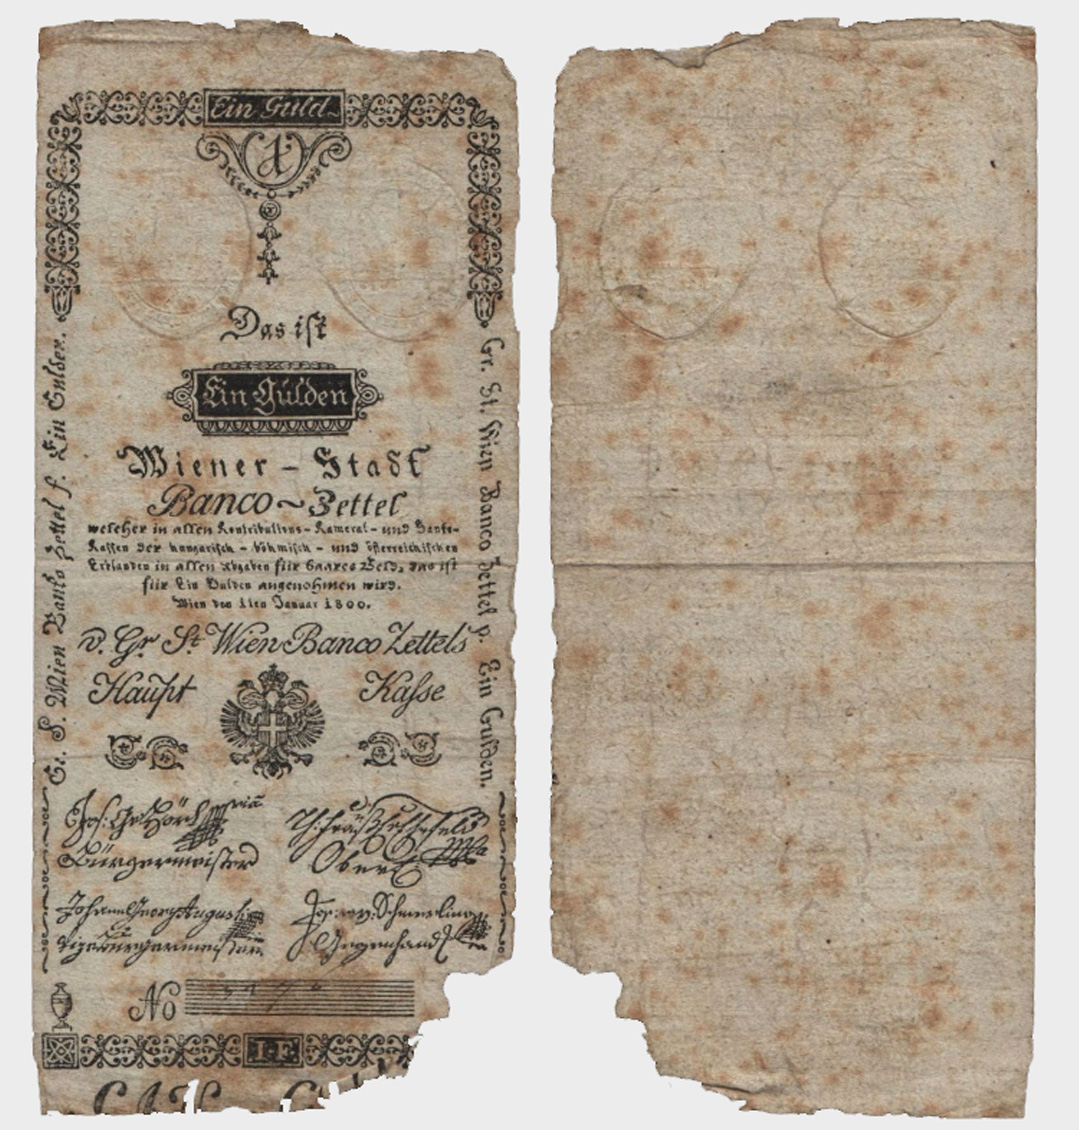 Ein Guld.
1
Das ist
Ein Gulden
Wiener – Stadt
Banco ~ Zettel
welcher in allen Kontributions – Kameral – und Banko-
Kassen der hungarisch – böhmisch – und österreichischen
Erblanden in allen Abgaben für baares Geld, das ist
für Ein Gulden angenohmen wird.
Wien den 1ten Januar 1800.
v. Gr St Wien Banco Zettels
Haupt Kasse
Gr. S. Wien Banko Zettel f. Ein Gulden.
Gr. St. Wien Banco Zettel p. Ein Gulden.
Bürgermeister
Johann Georg Augusti
Vizebürgermeister
Jos. v. Schmerling
Gegenhand
No